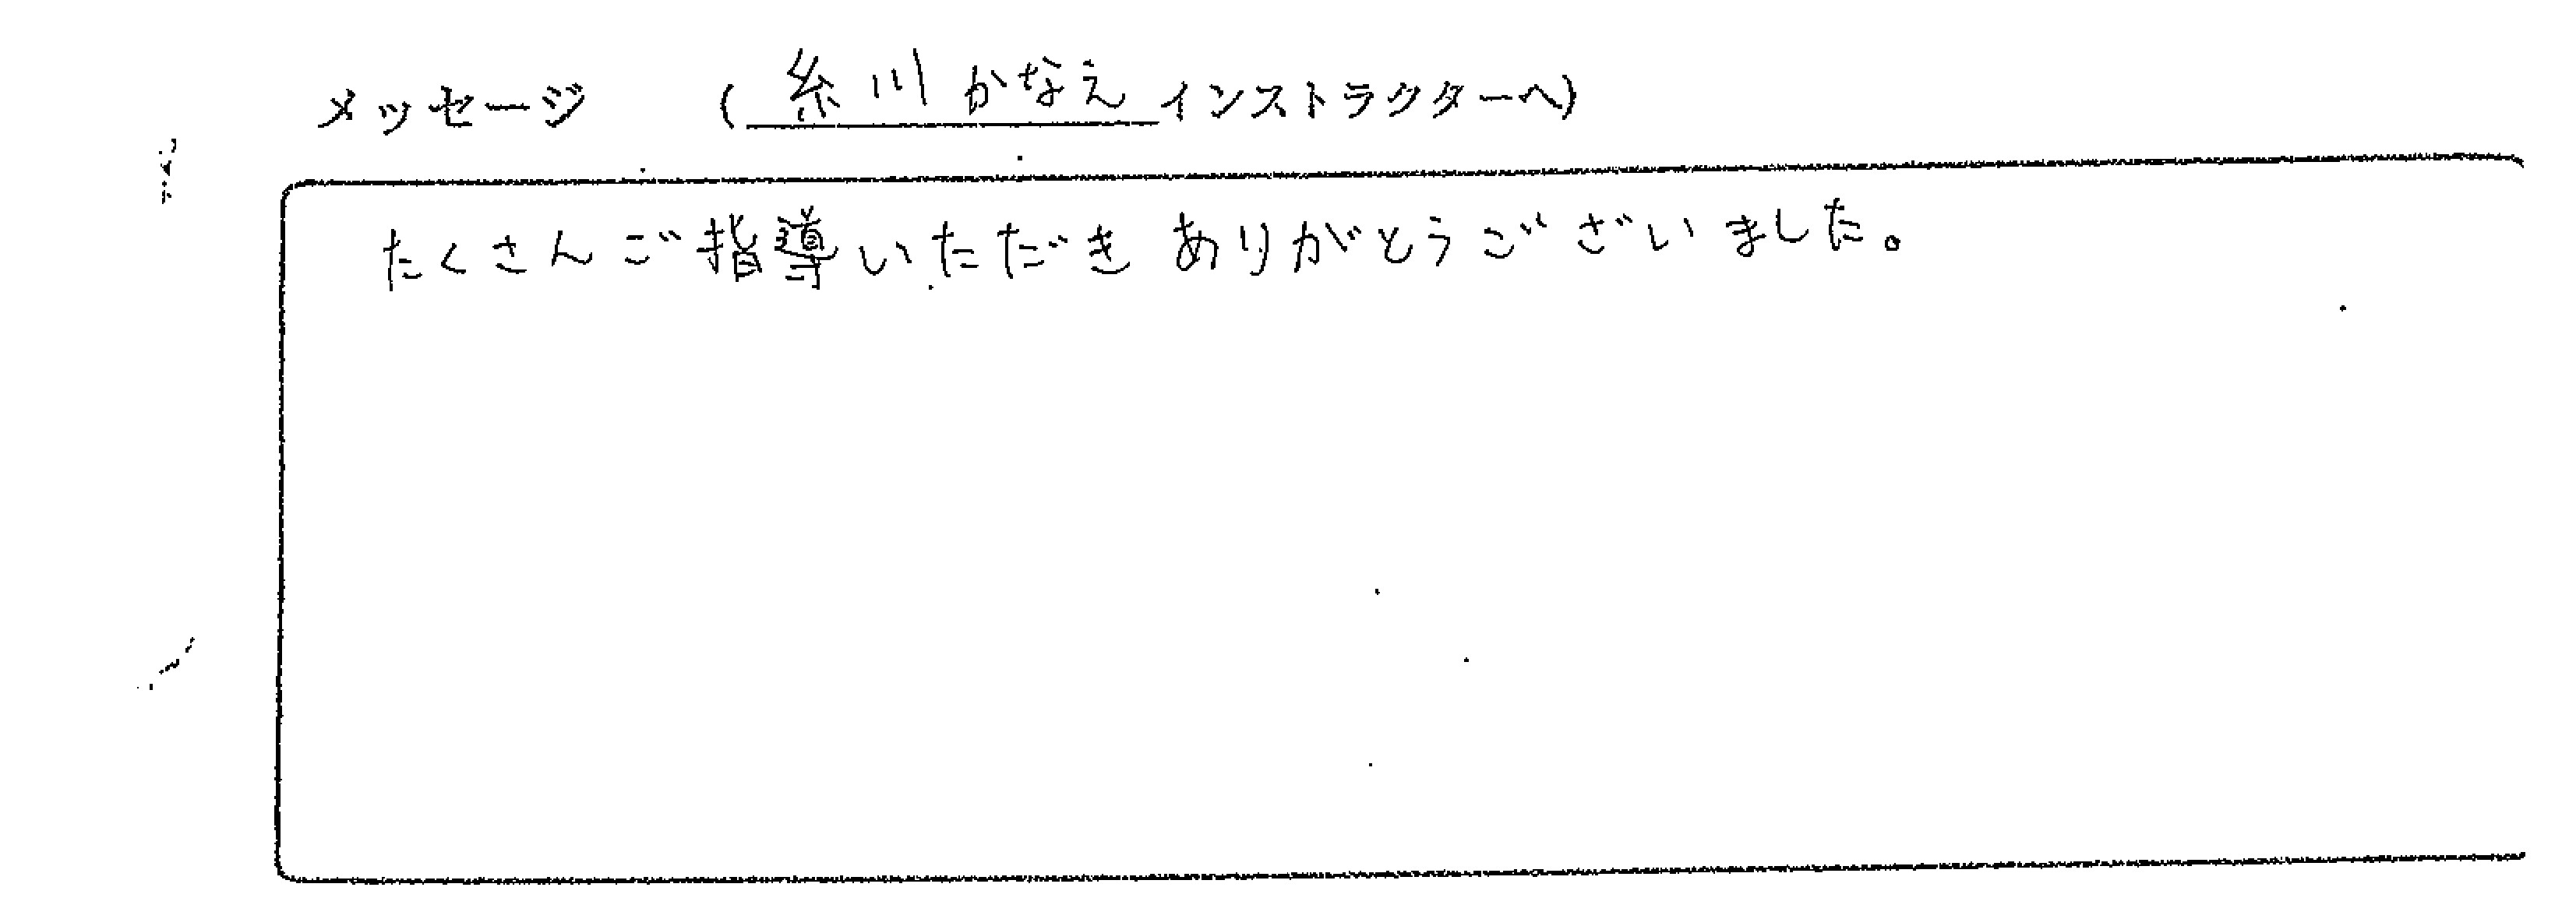 メッセージ （糸川かなえインストラクターへ）
たくさんご指導いただきありがとうございました。